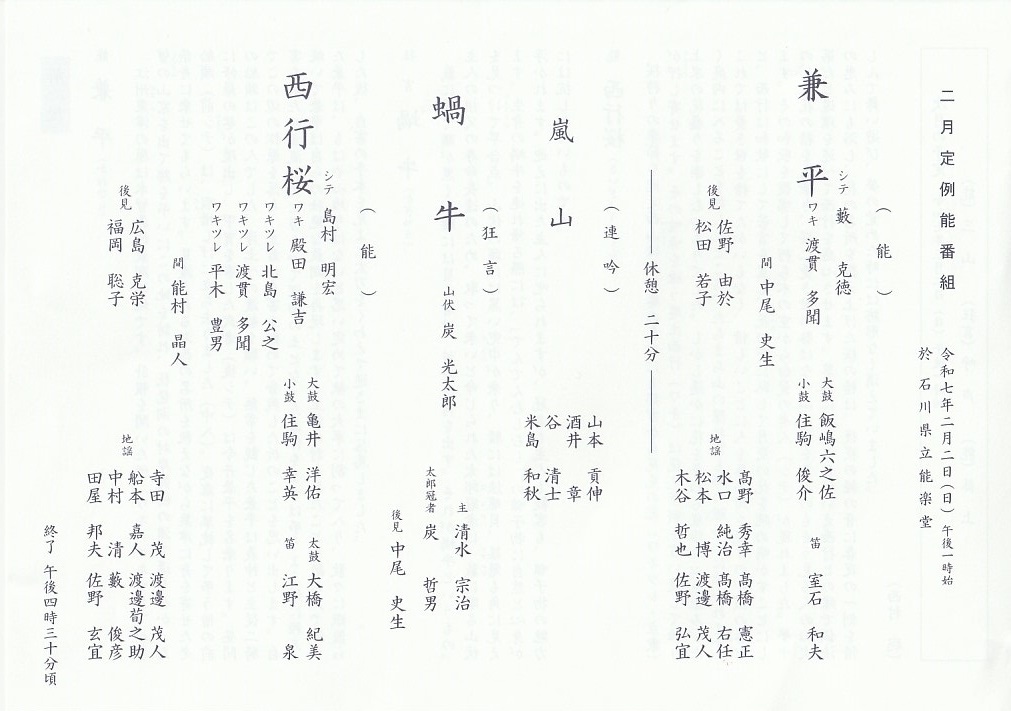 二月定例能番組
令和七年二月二日(日)午後一時始
於 石川県立能楽堂
(能)
兼平
シテ 藪 克徳
ワキ 渡貫 多聞
間 中尾 史生
後見 佐野 由於
松田 若子
大鼓 飯嶋六之佐
小鼓 住駒 俊介
笛 室石 和夫
地謡
髙野 秀幸 髙橋 憲正
水口 純治 髙橋 右任
松本 博 渡邊 茂人
木谷 哲也 佐野 弘宜
休憩 二十分
(連吟)
嵐山
山本 貢伸
酒井 章
谷 清士
米島 和秋
(狂言)
蝸牛
山伏 炭 光太郎
主 清水 宗治
太郎冠者 炭 哲男
後見 中尾 史生
(能)
西行桜
シテ 島村 明宏
ワキ 殿田 謙吉
ワキツレ 北島 公之
ワキツレ 渡貫 多聞
ワキツレ 平木 豊男
間 能村 晶人
後見 広島 克栄
福岡 聡子
大鼓 亀井 洋佑
小鼓 住駒 幸英
太鼓 大橋 紀美
笛 江野 泉
地謡
寺田 茂 渡邊 茂人
船本 嘉人 渡邊荀之助
中村 清 藪 俊彦
田屋 邦夫 佐野 玄宜
終了 午後四時三十分頃